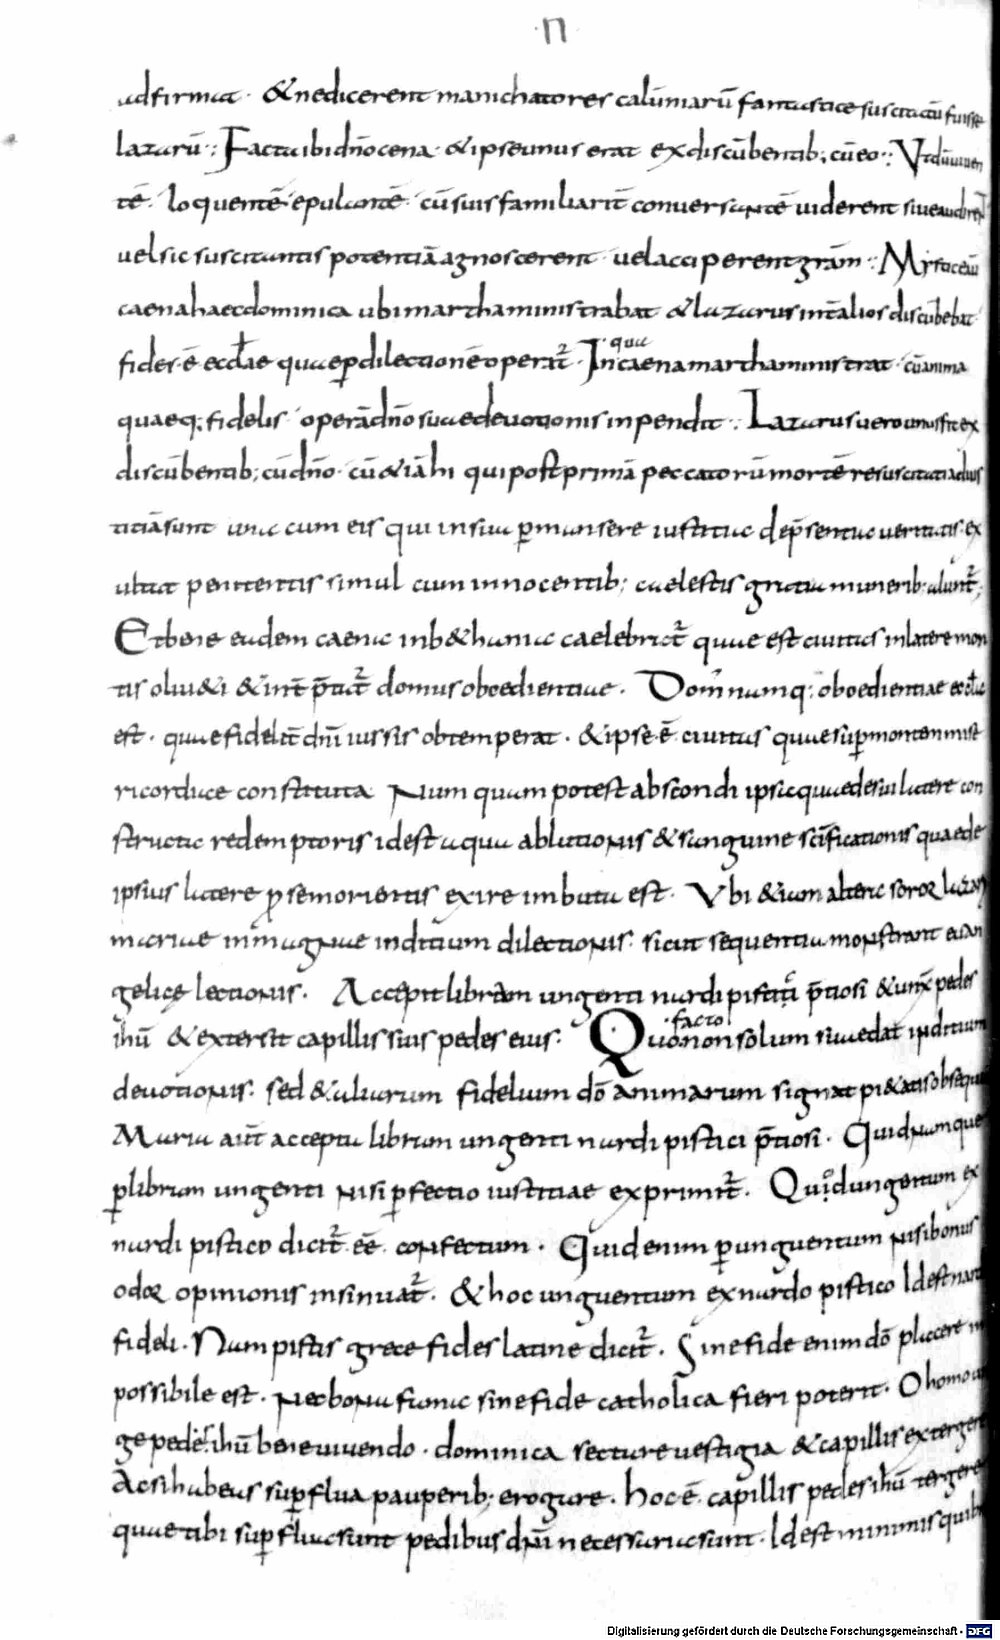 n
adfirmat · & ne dicerent manichatores calūniarū fantastice suscitatū fuisse
lazarū ·: Facta ibi dn̄o cena · & ipse unus erat ex discūbentib; cū eo ·: Vt dū uiuen
tē · loquentē epulantē · cū suis familiarit̄ conversantē viderent sive audirent
vel sic suscitantis potentiā agnoscerent · vel acciperent grām ·: Mystice aut̄
caena haec dominica ubi martha ministrabat & lazarus int̄ alios discūbebat
fides · ē ecclae quae p dilectionē operat̄ · In qua caena martha ministrat · cū anima
quaeq; fidelis · operā dn̄o suae devotionis inpendit ·: Lazarus vero unus fit ex
discūbentib; cū dn̄o · cū & iā hi qui post primā peccatorū mortē resuscitati ad ius
titiā sunt una cum eis qui in sua pmansere iustitia de p̄sentia veritatis · ex
ultat penitentis simul cum innocentib; caelestis gratia munerib; alunt̄;
Et bene eadem caena in b&hania caelebrat̄ quae est civitas in latere mon
tis oliu&i & int̄p̄tat̄ domus oboedientiae · Domꝰ namq; oboedientiae ecclae
est · quae fidelit̄ dn̄i iussis obtemperat · & ipse · ē · civitas quae sup montem mise
ricordiae constituta Numquam potest abscondi ipsa quae de sui latere con
structa redemptoris id est aqua ablutionis & sanguine scīficationis quae de
ipsius latere p se morientis exire imbuta est · Vbi & iam altera soror lazari
mariae in magnae inditium dilectionis · sicut sequentia monstrant evan
gelicę lectionis · Accepit libram ungenti nardi pistici p̄tiosi & unx̄ pedes
ihū & extersit capillis suis pedes eius · Quo facto non solum suae dat inditium
devotionis · sed & aliarum fidelium dō animarum signat pi&atis obsequia
Maria aut̄ accepta libram ungenti nardi pistici p̄tiosi · Quid namque
p libram ungenti nisi pfectio iustitiae exprimit̄ · Quid ungentum ex
nardi pistico dicit̄ · eē · confectum · Quid enim p unguentum nisi bonus
odor opinionis insinuat̄ · & hoc unguentum ex nardo pistico Id est nardo
fideli · Nam pistis grece fides latine dicit̄ · Sine fide enim dō placere in
possibile est · Nec bona fama sine fide catholica fieri poterit · O homo un
ge pedes ihū bene vivendo · dominica sectare vestigia & capillis exterge
Ac si habeas supflua pauperib; erogare · hoc ē capillis pedes ihū tergere
quae tibi supflua sunt pedibus dn̄i necessaria sunt · Id est minimis quib
Digitalisierung gefördert durch die Deutsche Forschungsgemeinschaft · DFG